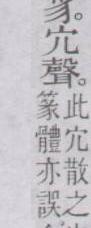 豸。宂聲。
此宂散之
篆體亦誤